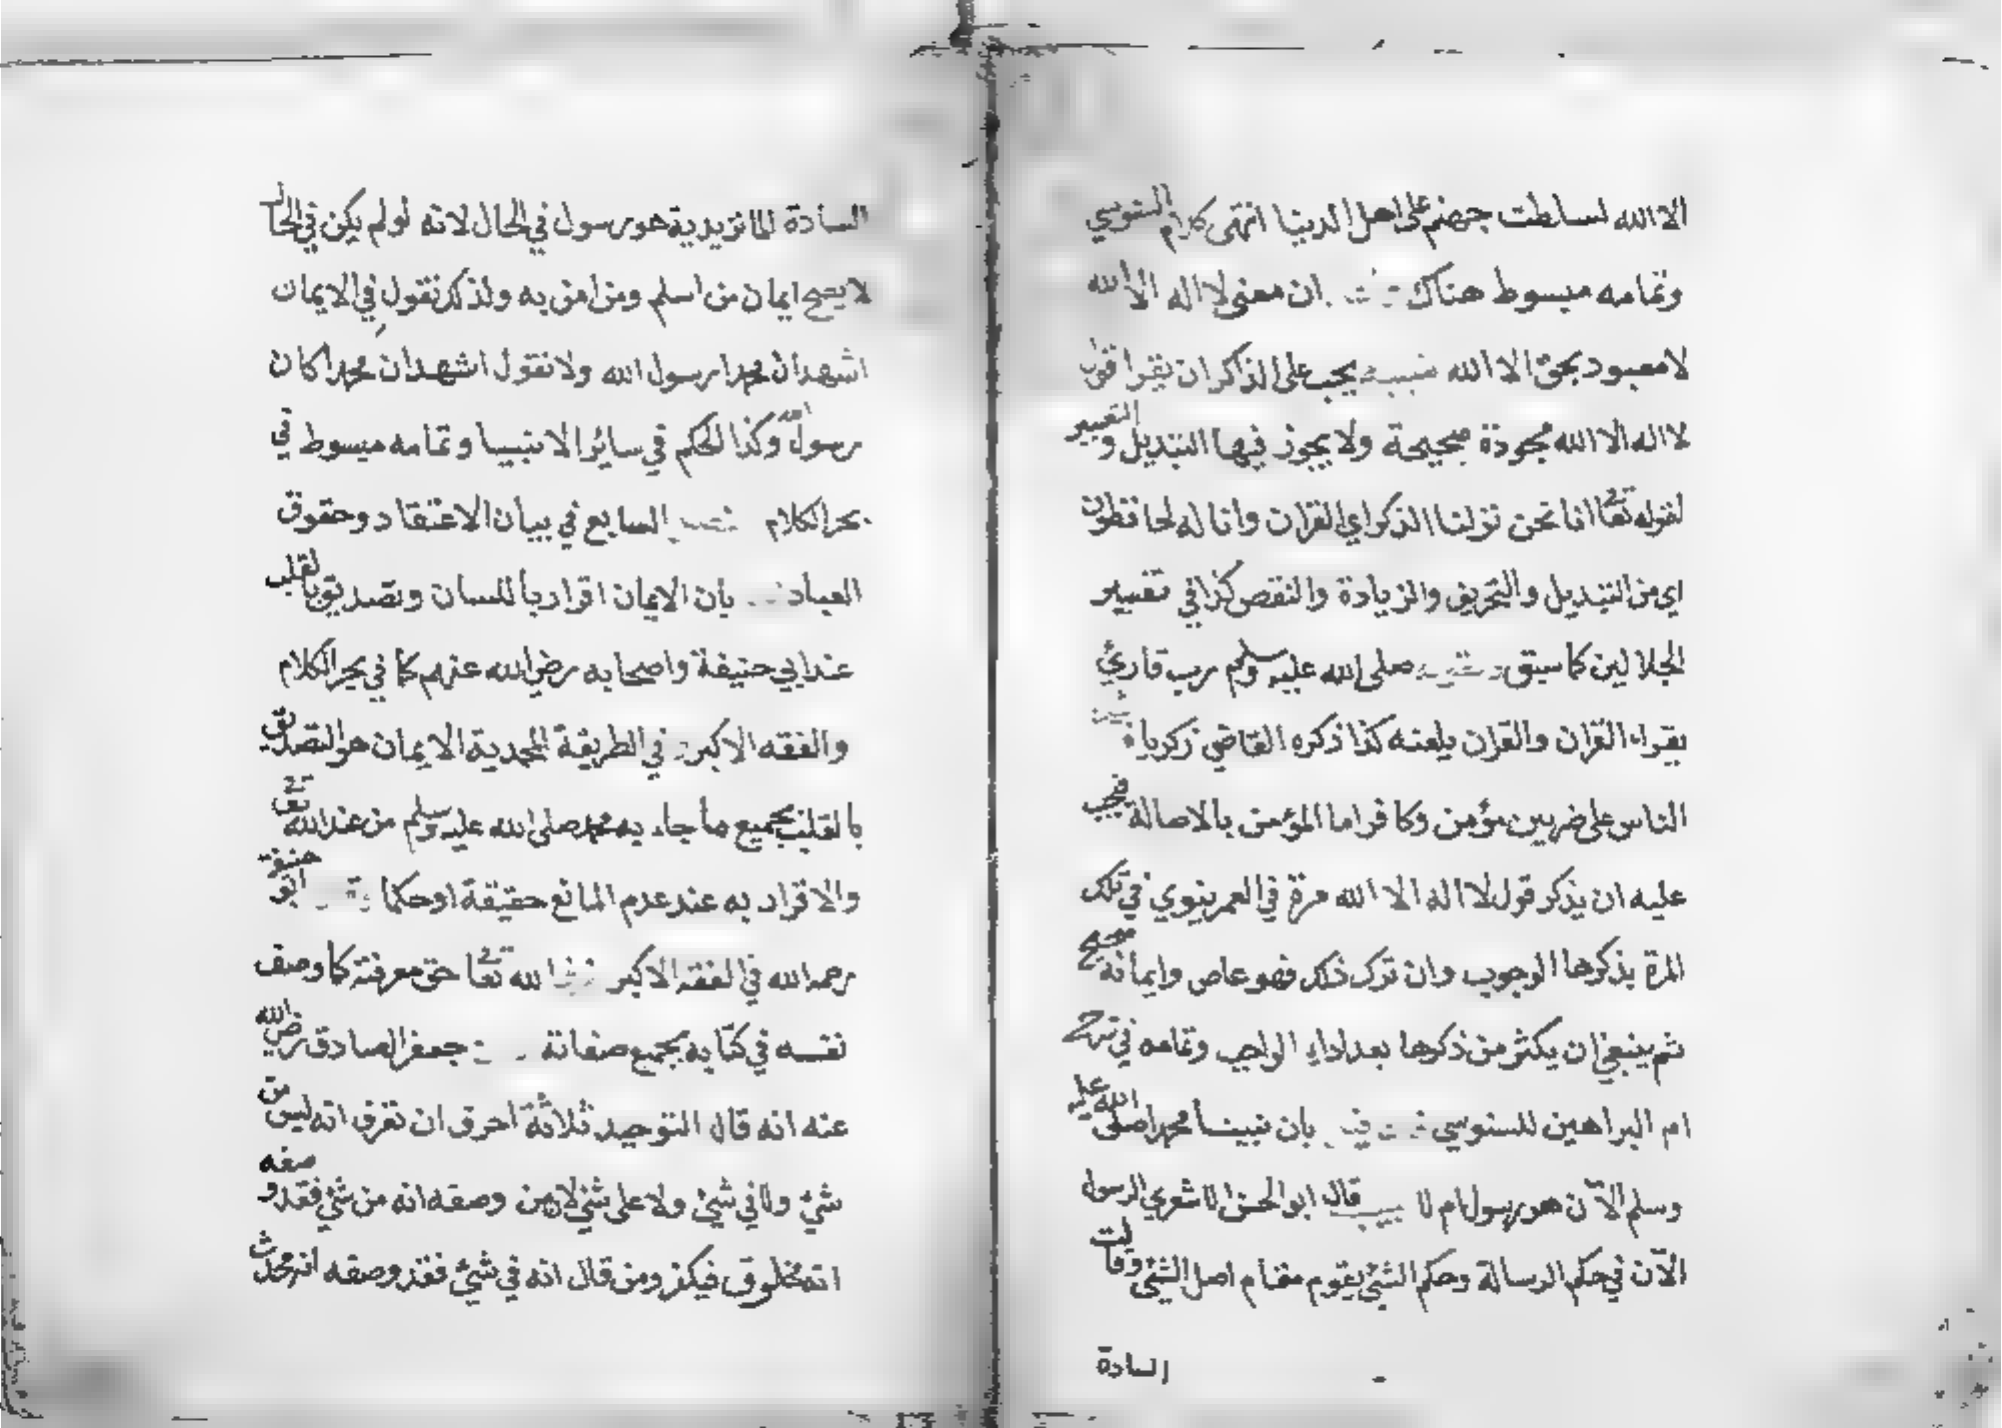 الا الله لسلطت جهنم على اهل الدنيا انتهى كلام السنوسي
وتمامه مبسوط هناك ان معنى لا اله الا الله
لا معبود بحق الا الله يجب على الذكر ان يقرا قول
لا اله الا الله مجودة صحيحة ولا يجوز فيها التبديل و التغيير
لقوله تعا انا نحن نزلنا الذكر اي القران وانا له لحافظون
اي من التبديل والتحريف والزيادة والنقص كذا في تفسير
الجلالين كما سبق صلى الله عليه وسلم رب قارئ
يقراء القران والقران يلعنه كذا ذكره القاضي زكريا
الناس على ضربين مؤمن وكافر اما المؤمن بالاصالة فيجب
عليه ان يذكر قول لا اله الا الله مرة في العمر ينوي في تلك
المرة يذكرها الوجوب وان ترك ذلك فهو عاص وايمانه صحيح
ثم ينبغي ان يكثر من ذكرها بعد اداء الواجب وتمامه في شرح
ام البراهين للسنوسي بان نبينا محمدا صلى الله عليه
وسلم الآن هو رسول ام لا قال ابو الحسن الاشعري الرسول
الآن في حكم الرسالة وحكم الشئ يقوم مقام اصل الشئ وقالت
السادة
السادة الماتريدية هو رسول في الحال لانه لو لم يكن في الحال
لا يصح ايمان من اسلم ومن امن به ولذكر نقول في الايمان
اشهد ان محمدا رسول الله ولا نقول اشهد ان محمدا كان
رسول الله وكذا الحكم في سائر الانبيا وتمامه مبسوط في
بحر الكلام السابع في بيان الاعتقاد وحقوق
العباد بان الايمان اقرار باللسان وتصديق بالقلب
عند ابي حنيفة واصحابه رضي الله عنهم كما في بحر الكلام
والفقه الاكبر في الطريقة المحمدية الايمان هو التصديق
بالقلب بجميع ما جاء به محمد صلى الله عليه وسلم من عند الله تعا
والاقرار به عند عدم المانع حقيقة او حكما ابو حنيفة
رحمه الله في الفقه الاكبر الله تعا حق معرفته كما وصف
نفسه في كتابه بجميع صفاته جعفر الصادق رضي الله
عنه انه قال التوحيد ثلاثة احرف ان تعرف انه ليس من
شئ ولا في شئ ولا على شئ لان من وصفه انه من شئ فقد وصفه
انه مخلوق فيكفر ومن قال انه في شئ فقد وصفه انه محدث